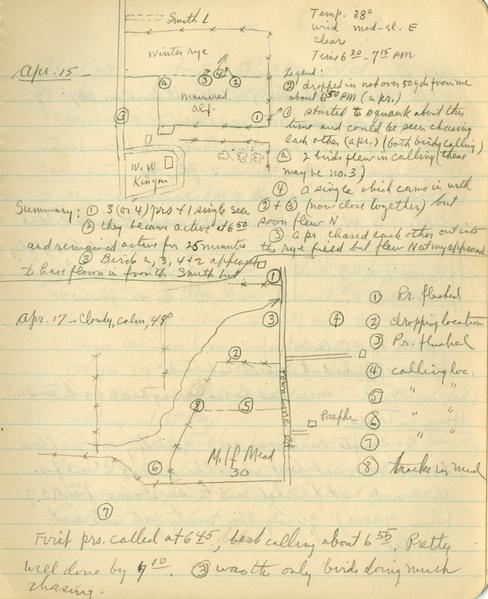 Apr. 15 -
Smith L.
Winter rye
manured
alf.
W. W.
Kinyon
Temp. 38°
wind mod-sl. E
clear
Time 6 30 - 7 15 PM
Legend:
② dropped in not over 50 yds from me
about 6 50 PM (a pr.)
① started to squawk about this
time and could be seen chasing
each other (a pr.) (both birds calling)
ⓐ 2 birds flew in calling (these
may be no. 3)
④ a single which came in with
② + ③ (now close together) but
soon flew N
③ a pr. chased each other out into
the rye field but flew N at my approach
Summary: ① 3 (or 4) prs + 1 single seen
② they became active at 6 50
and remained active for 25 minutes
③ Birds a, 3, 4 + 2 appeared
to have flown in from the Smith
Apr. 17 - Cloudy, calm, 48°
① ③ ④ ② ⑧ ⑤ ⑥ ⑦
Town Line Rd.
Milf Mead
30
① Pr. flushed
② dropping location
③ Pr. flushed
④ calling loc.
⑤ " "
⑥ " "
⑦ " "
⑧ tracks in mud
First prs. called at 6 45, best calling about 6 55. Pretty
well done by 7 10. ③ was the only birds doing much
chasing.